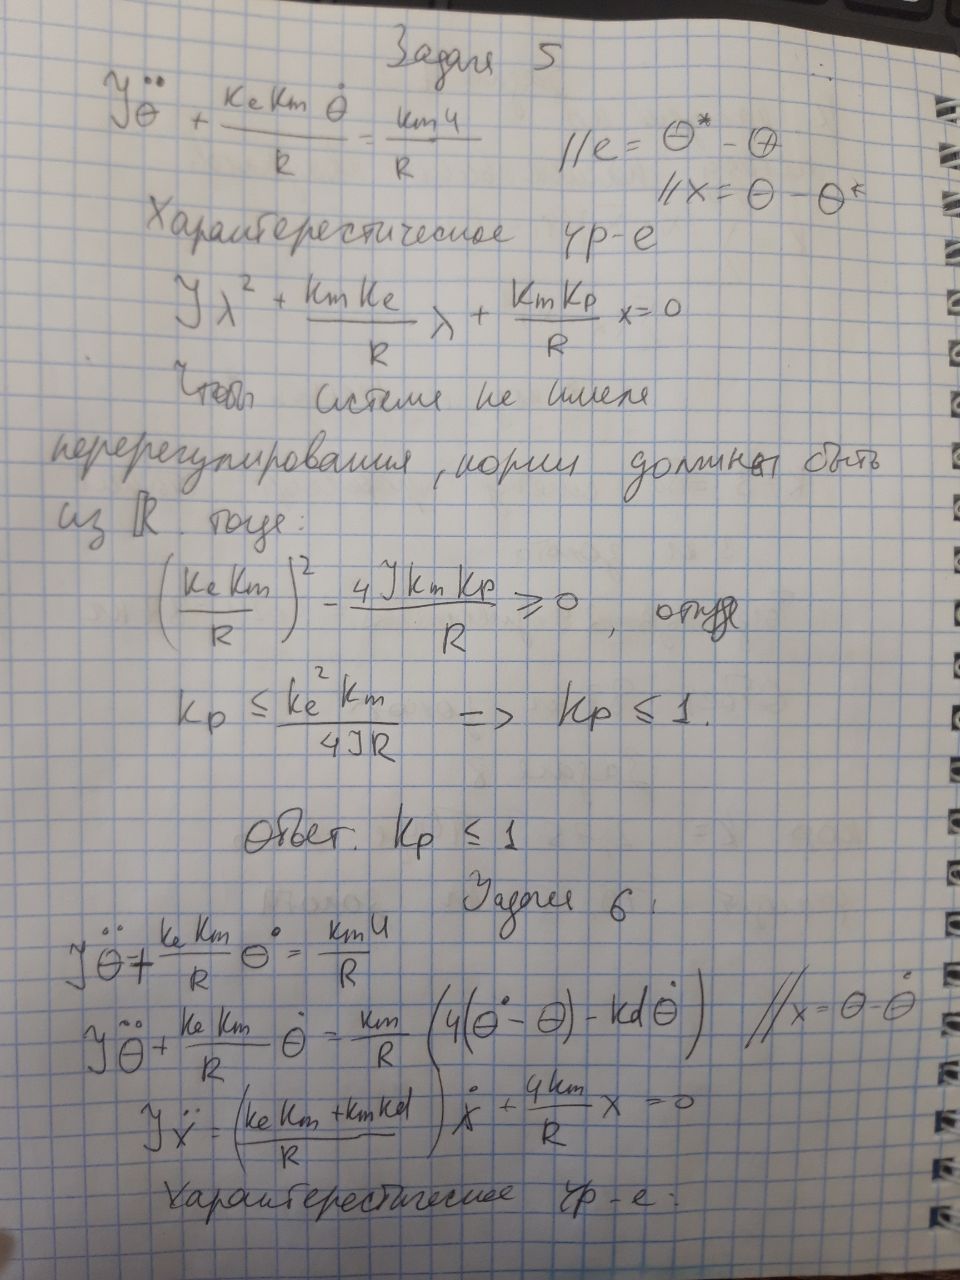 Задача 5
Jθ̈ + KeKm θ̇ / R = Km U / R //e = θ* - θ
//x = θ - θ*
Характерестическое ур-е
Jλ² + KmKe/R λ + KmKp/R x = 0
Чтобы система не имела
перерегулирования, корни должны быть
из ℝ. тогда:
(KeKm/R)² - 4JKmKp/R ≥ 0, откуда
Kp ≤ Ke²Km/4JR => Kp ≤ 1.
Ответ. Kp ≤ 1
Задача 6.
Jθ̈ + KeKm/R θ̇ = KmU/R
Jθ̈ + KeKm/R θ̇ = Km/R (4(θ̇ - θ) - Kdθ̇) //x = θ - θ̇
Jẍ = (KeKm + KmKd / R) ẋ + 4Km/R x = 0
Характерестическое ур-е: